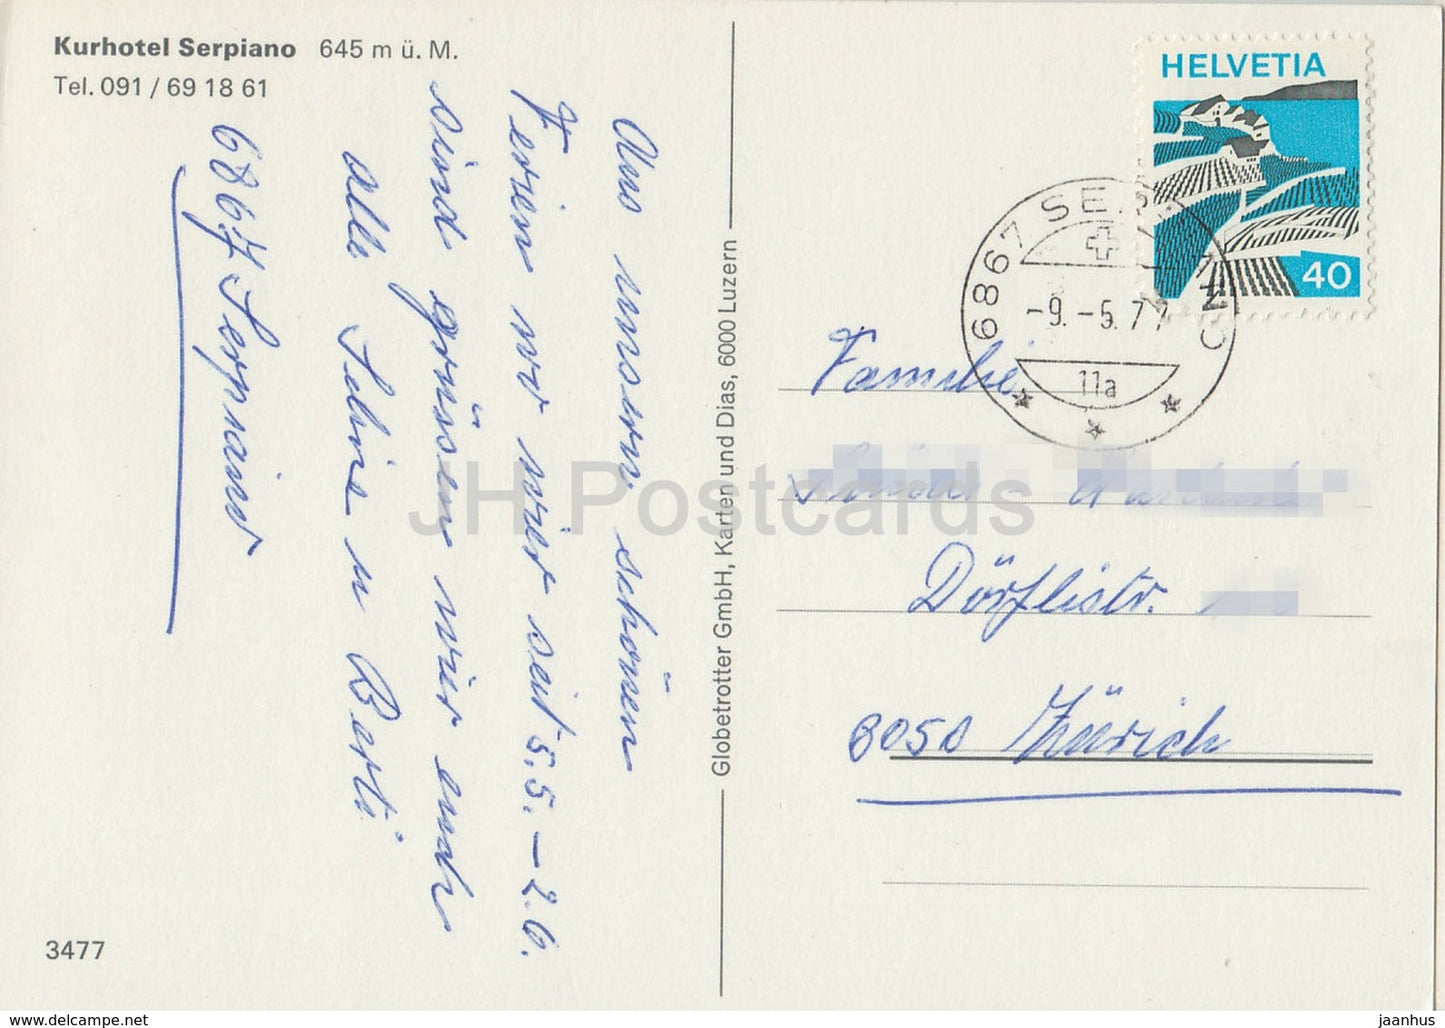 Kurhotel Serpiano 645 m ü. M.
Tel. 091 / 69 18 61
Aus unsern schönen
Ferien wo wir seit 5.5. – 2.6.
sind grüssen wir euch
alle Silvie u Berti
6867 Serpiano
3477
Globetrotter GmbH, Karten und Dias, 6000 Luzern
HELVETIA
40
6867 SERPIANO
-9.-5.77
11a
Familie
Dörflistr.
8050 Zürich
JH Postcards
www.delcampe.net
jaanhus